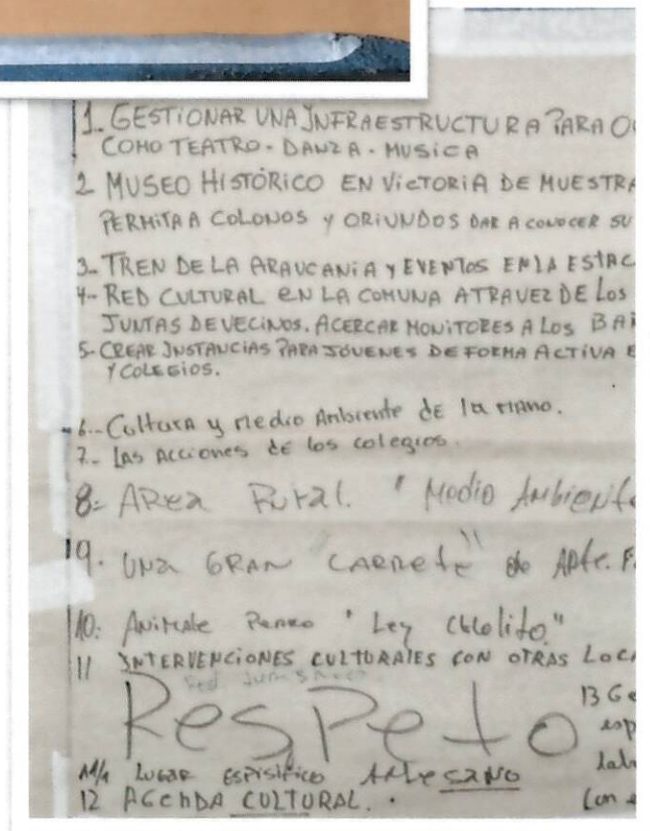 1. GESTIONAR UNA INFRAESTRUCTURA PARA O
COMO TEATRO - DANZA - MUSICA
2 MUSEO HISTÓRICO EN VICTORIA DE MUESTRA
PERMITA A COLONOS Y ORIUNDOS DAR A CONOCER SU
3.- TREN DE LA ARAUCANIA Y EVENTOS EN LA ESTAC
4.- RED CULTURAL EN LA COMUNA ATRAVEZ DE LOS
JUNTAS DE VECINOS. ACERCAR MONITORES A LOS BAR
5.- CREAR INSTANCIAS PARA JÓVENES DE FORMA ACTIVA E
Y COLEGIOS.
6.- Cultura y Medio Ambiente de la mano.
7.- Las Acciones de los colegios.
8.- AREA Rural. " Medio Ambiente
9. UNA GRAN CARRETE" de ARte. F
10. Animale Perro "Ley Cholito"
11 INTERVENCIONES CULTURALES CON OTRAS LOCA
Respeto
13 Ge
esp
lab
Con
LUGAR ESPISIFICO ARteSANO
12 AGENDA CULTURAL.